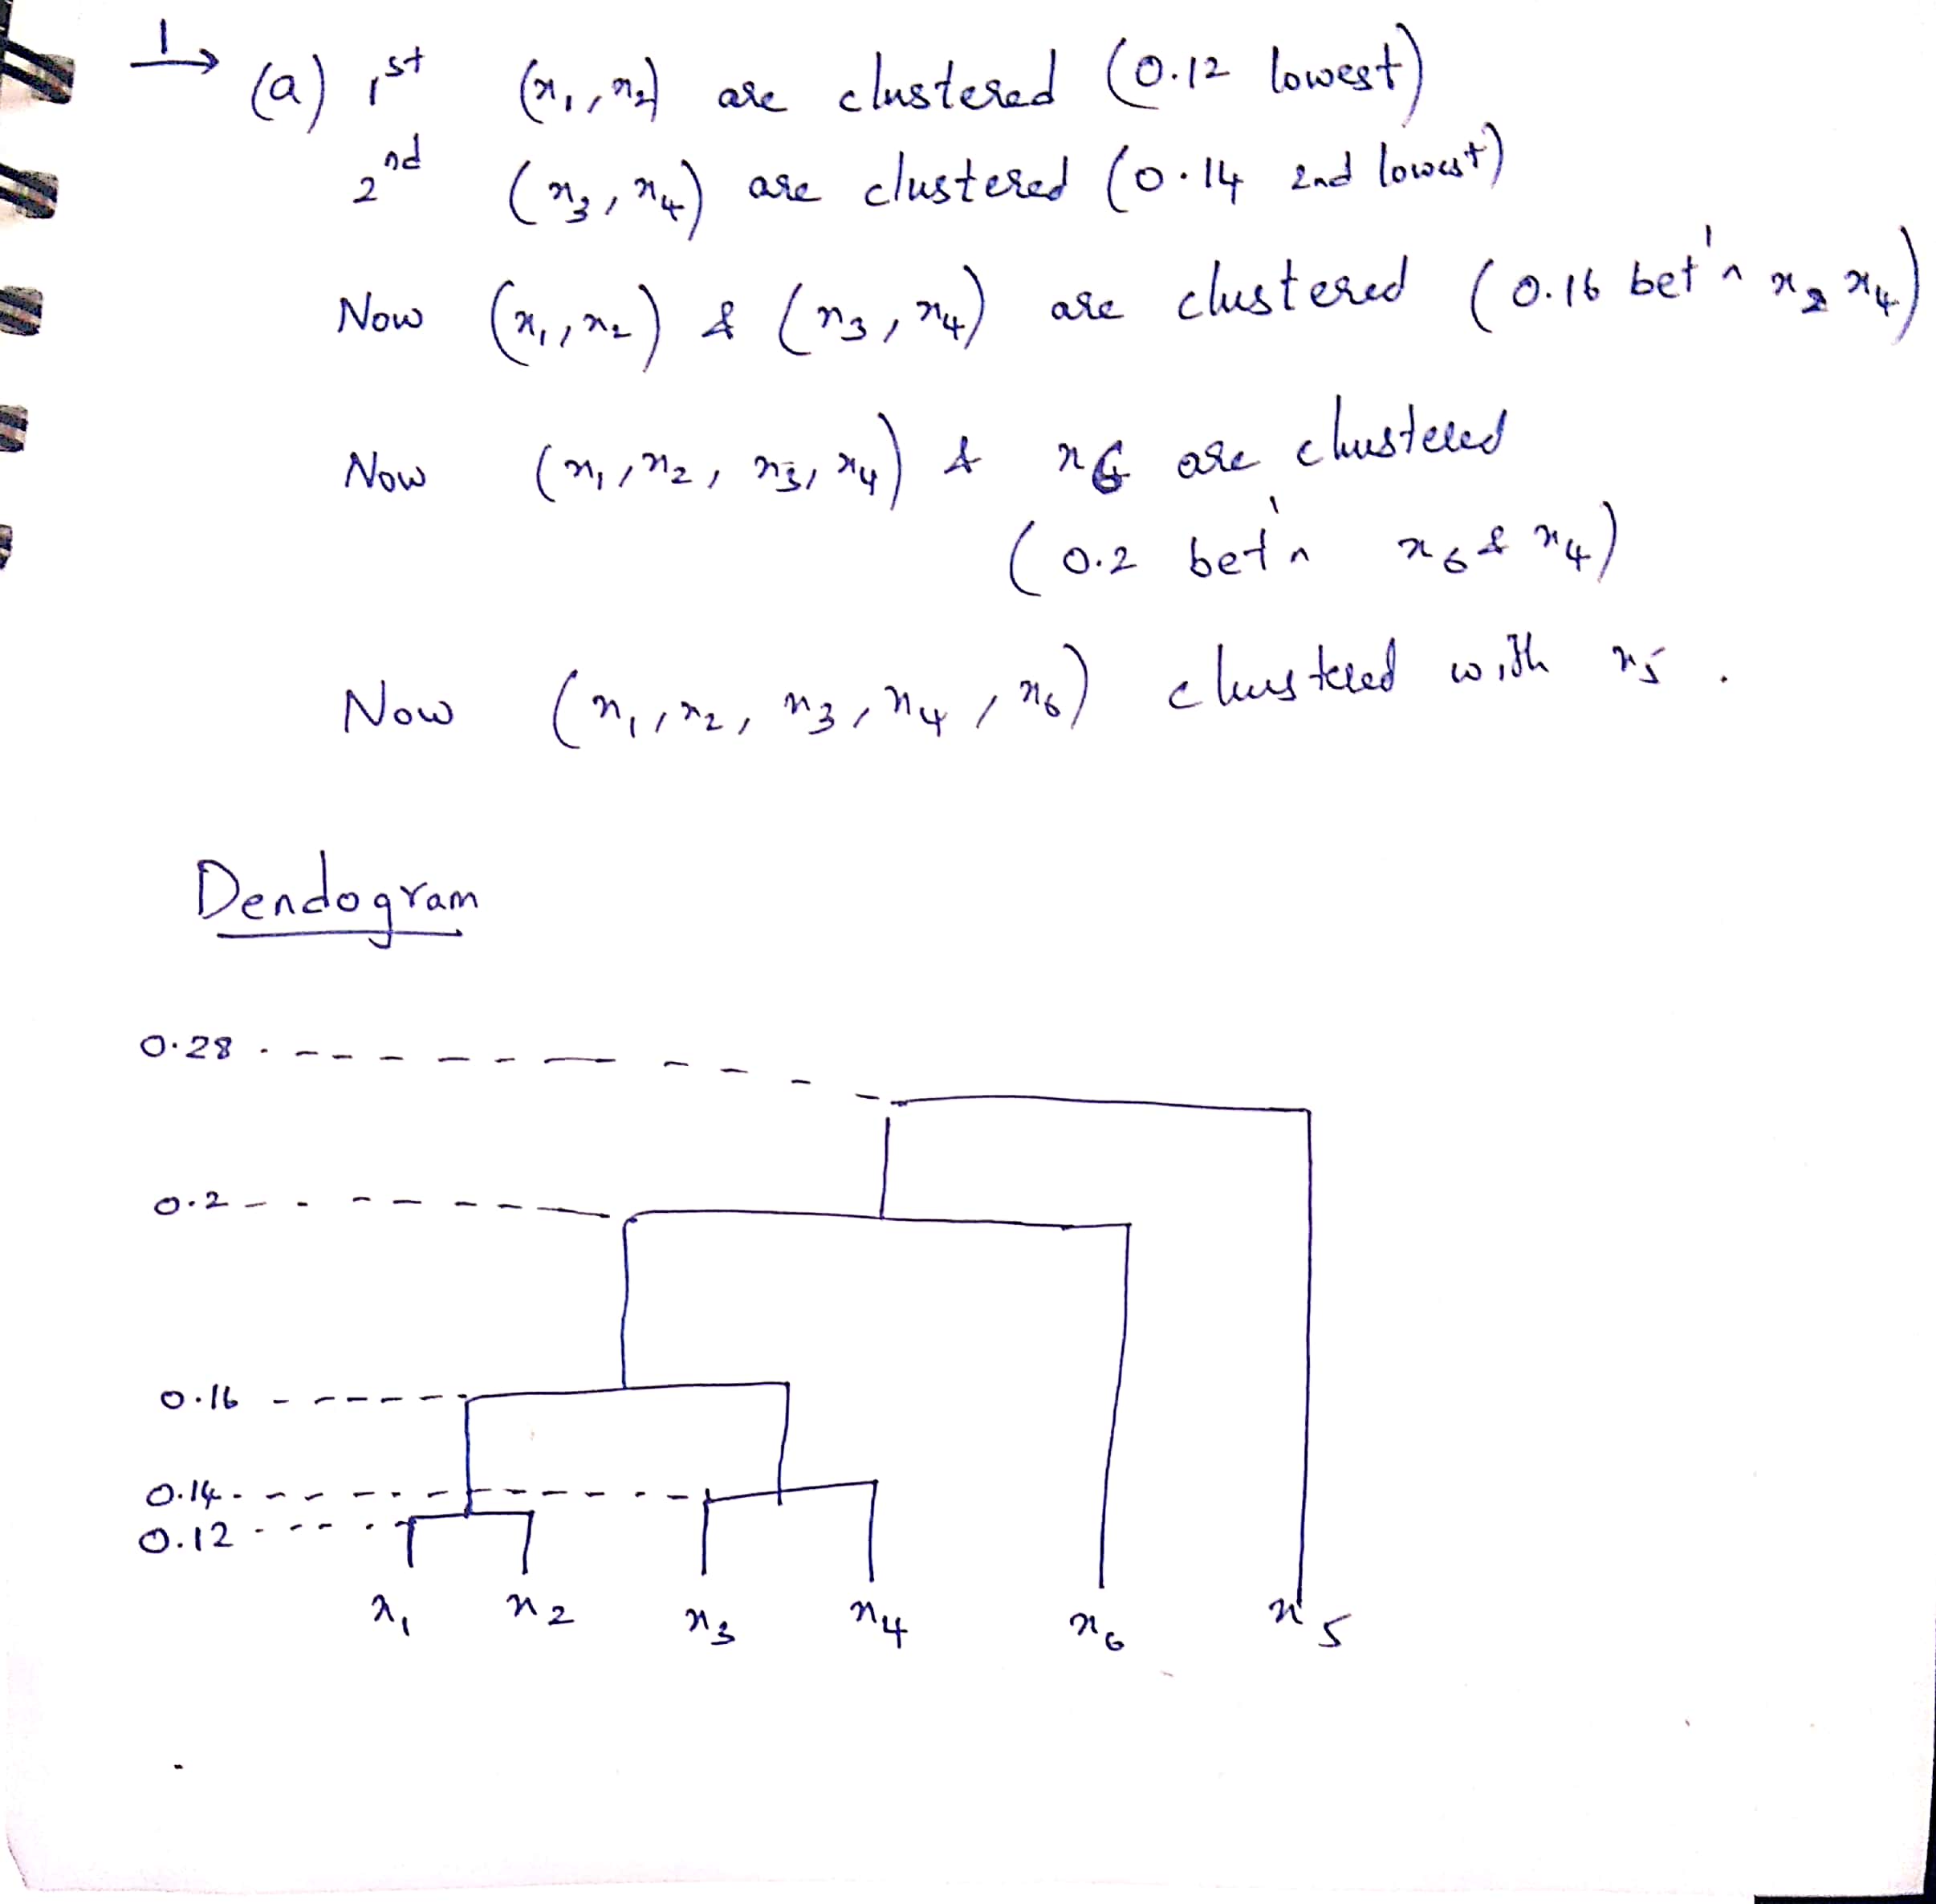 1→ (a) 1st (x₁, x₂) are clustered (0.12 lowest)
2nd (x₃, x₄) are clustered (0.14 2nd lowest)
Now (x₁, x₂) & (x₃, x₄) are clustered (0.16 bet'n x₂ x₄)
Now (x₁, x₂, x₃, x₄) & x₆ are clustered
(0.2 bet'n x₆ & x₄)
Now (x₁, x₂, x₃, x₄, x₆) clustered with x₅.
Dendogram
0.28
0.2
0.16
0.14
0.12
x₁ x₂ x₃ x₄ x₆ x₅